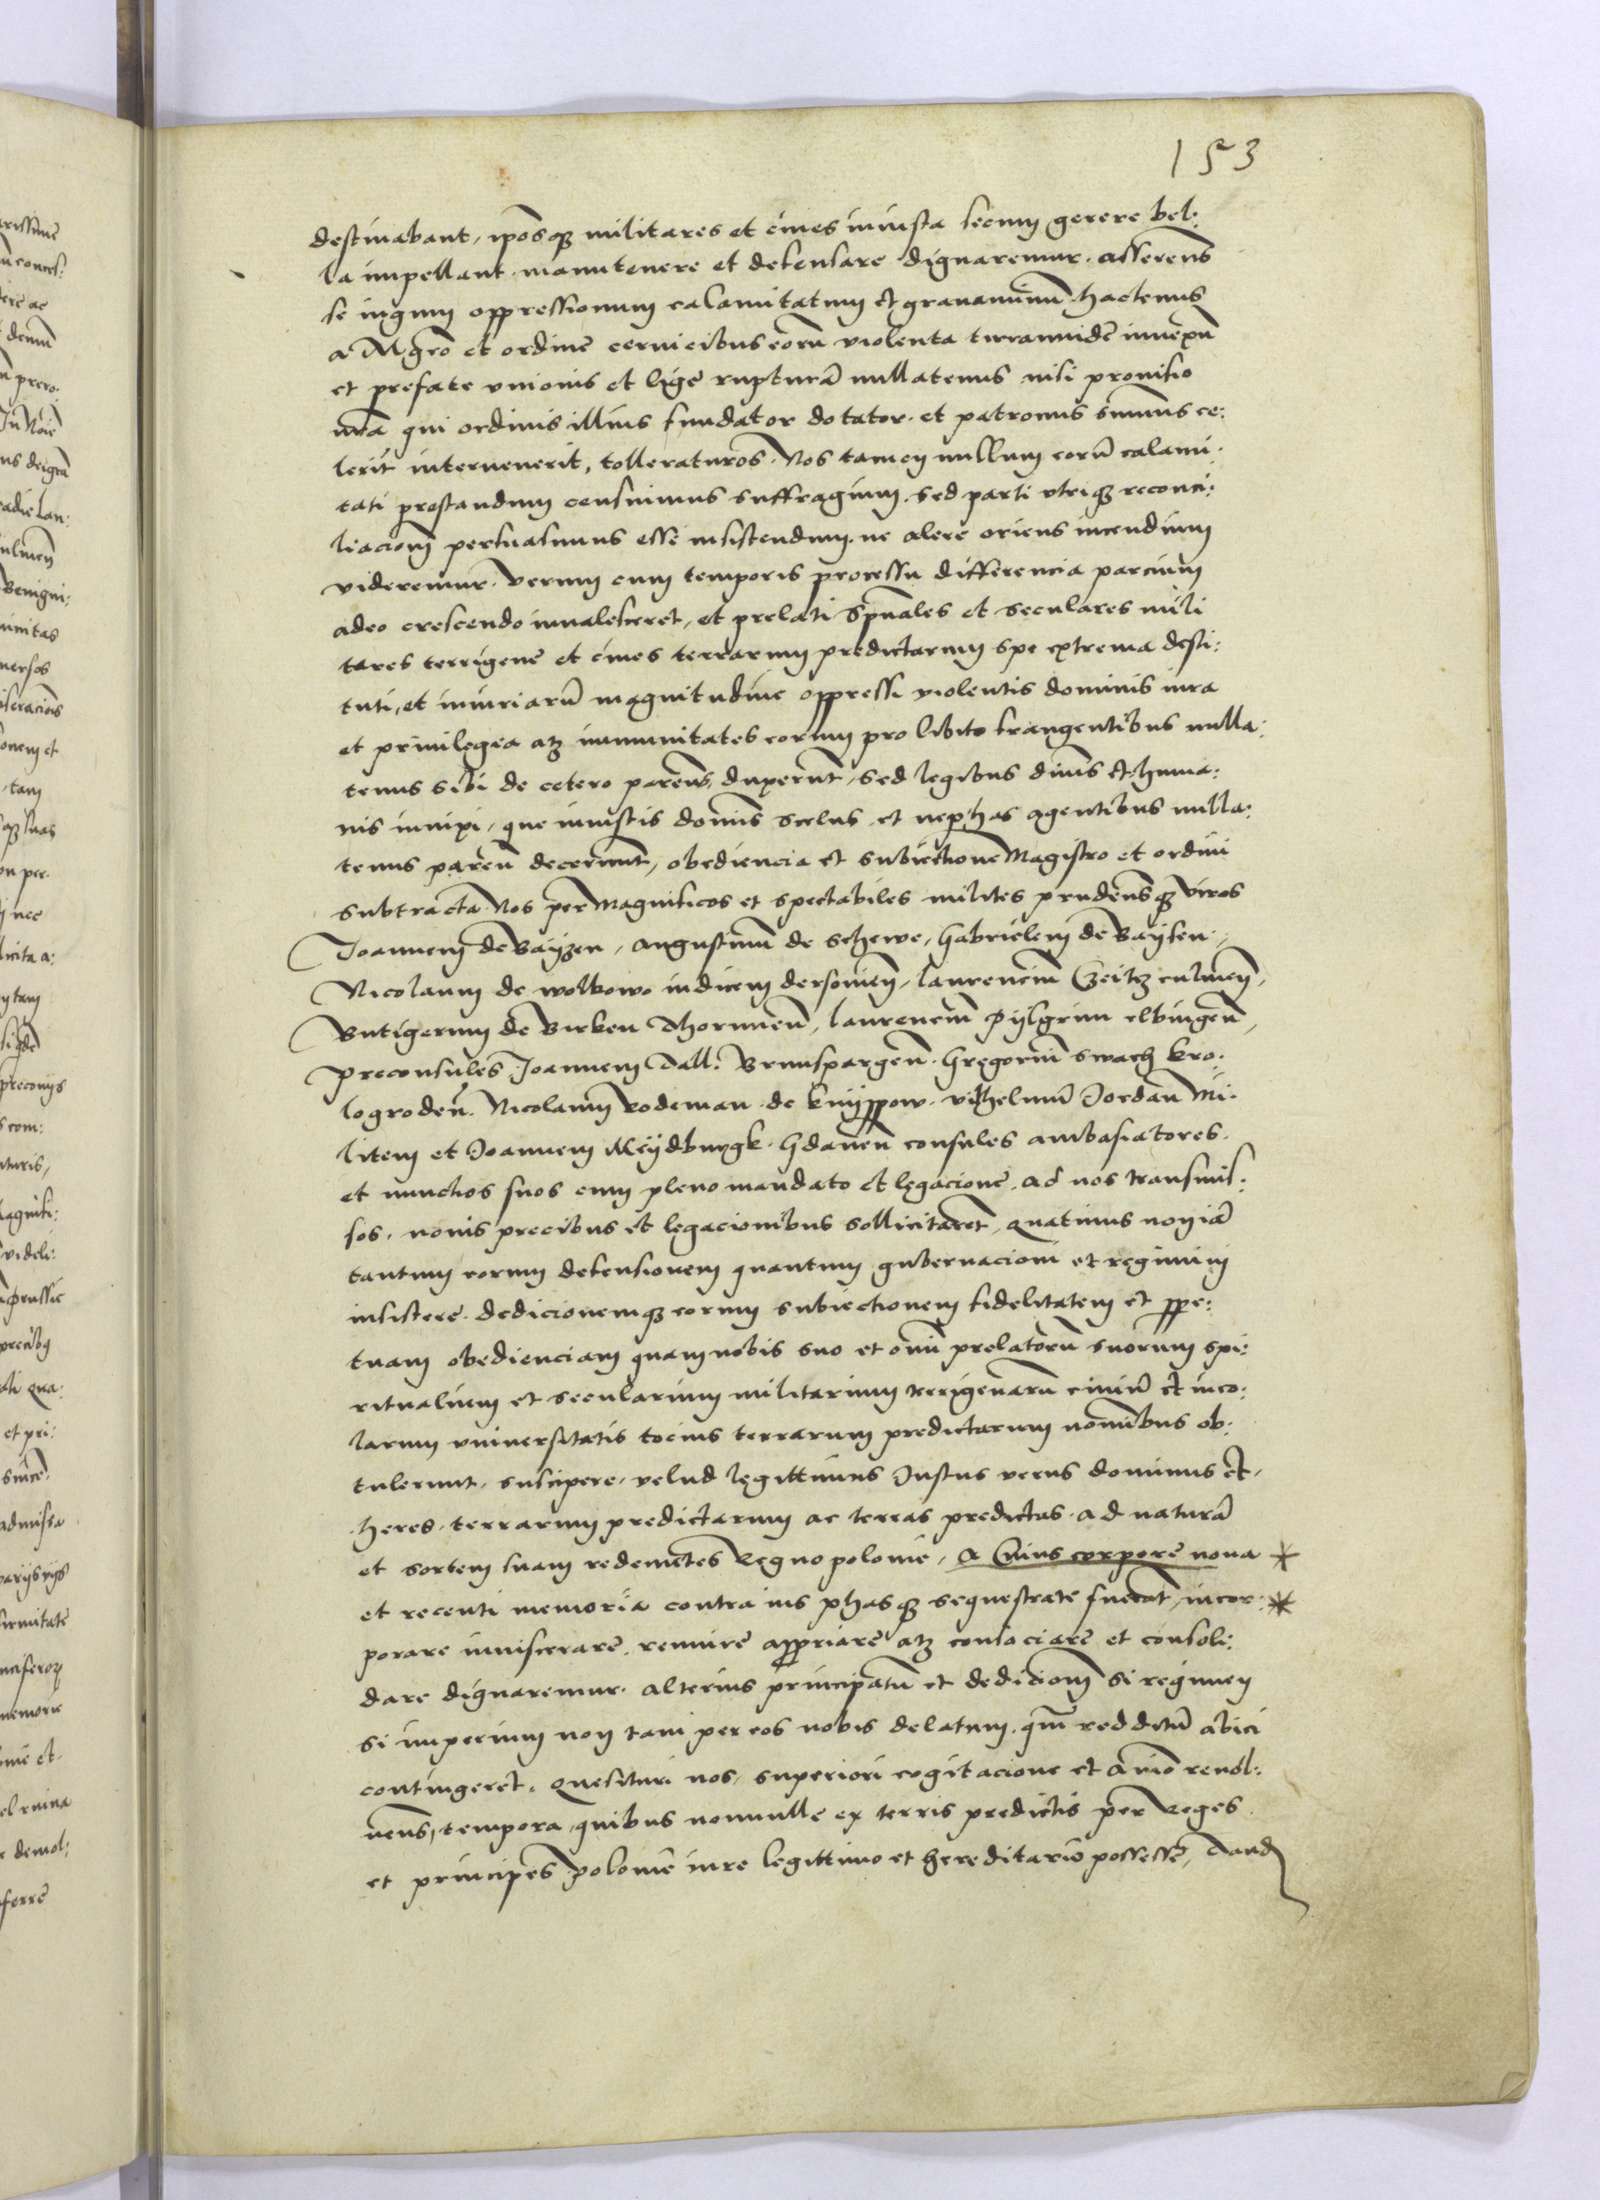 153
destinabant, ip̄osq3 militares et ciues iniusta secum gerere bel:
la impellant. manutenere et defensare dignaremur. asserens̄
se iugum oppressionum calamitatum et grauaminū hactenus
a Mgr̄o et ordine ceruicibus eorū violenta tirannide inuexū
et prefate vnionis et lige rupturā nullatenus nisi prouisio
nr̄a qui ordinis illius fundator dotator. et patronus sumus ce:
lerit interuenerit, tolleraturos. Nos tamen nullum eorū calami:
tati prestandum censuimus suffragium. sed parti vtriq3 reconci:
liacionī persuasimus esse insistendum. ne alere oriens incendium
videremur. verum cum temporis processu differencia parcium
adeo crescendo inualesceret, et prelati sp̄uales et seculares mili
tares terrigene et ciues terrarum predictarum spe extrema desti:
tuti, et iniuriarū magnitudine oppressi violentis dominis iura
et priuilegia atq3 immunitates eorum pro libito frangentibus nulla:
tenus sibi de cetero parend̄ duxerunt, sed legibus diuis et huma:
nis innixi, que iniustis dominis scelus et nephas agentibus nulla:
tenus parend̄ decernunt, obediencia et subiectione Magistro et ordini
subtracta Nos per Magnificos et spectabiles milites prudentesq3 viros
Joannem de Bayzen, augustinū de Schewe, Gabrielem de Baysen,
Nicolaum de wolkowo iudicem dersouien̄, laurenciū Czeitz culmen̄,
Rutigerum de Birken Thorunen̄, laurenciū Pylgrim elbingen̄,
preconsules Joannem Dall. Brunspargen̄. Gregoriū swach kro:
logroden̄. Nicolaum rodeman de knyppow. vilhelmū Jordan Mi:
litem et Joannem Meydburgk. Gdanen̄ consules ambasiatores.
et nunctios suos cum pleno mandato et legacione. ad nos transmis:
sos. nouis precibus et legacionibus sollicitarēt, quatinus non iā
tantum eorum defensionem quantum gubernacionī et regimini
insistere. dedicionemq3 eorum subiectionem fidelitatem et ppe:
tuam obedienciam quam nobis suo et omniū prelatorū suorum spi:
ritualium et secularium militarium terrigenarū ciuiū et inco:
larum vniuersitatis tocius terrarum predictarum nominibus ob:
tulerunt. suscipere. velud legittimus Justus verus dominus et.
heres. terrarum predictarum ac terras predictas. ad naturā
et sortem suam redeuntes Regno polonie, a Cuius corpore noua *
et recenti memoria contra ius phasq3 sequestrate fuerāt, incor: *
porare inuiscerare. reunire appriare atq3 consociare et consoli:
dare dignaremur. alterius principatū et dedicionī si regimen
si imperium non tam per eos nobis delatum. q̄m redditū abici
contingeret. quesituri nos, superiori cogitacione et aīo reuol:
uens, tempora, quibus nonnulle ex terris predictis per Reges
et principes polonie iure legittimo et hereditario possesse, Dand